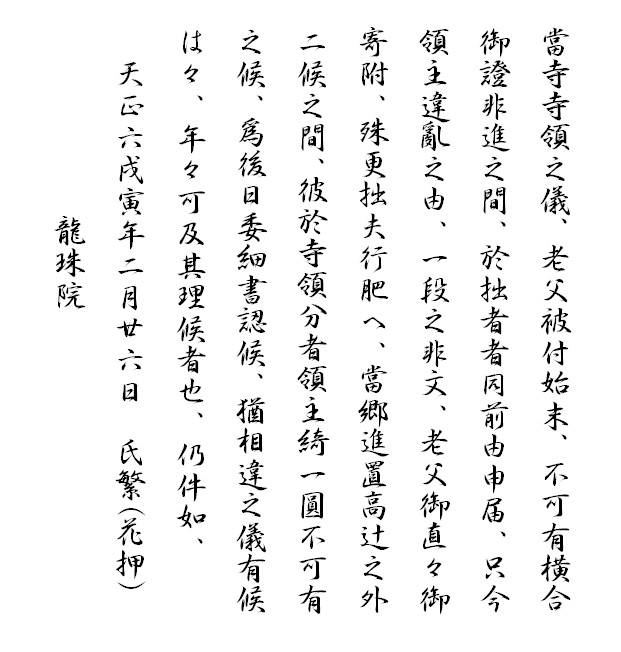 當寺寺領之儀、老父被付始末、不可有横合
御證非進之間、於拙者者同前由申届、只今
領主違亂之由、一段之非文、老父御直々御
寄附、殊更拙夫行肥へ、當郷進置高辻之外
二候之間、彼於寺領分者領主綺一圓不可有
之候、爲後日委細書認候、猶相違之儀有候
は々、年々可及其理候者也、仍件如、
天正六戌寅年二月廿六日　氏繁（花押）
龍珠院